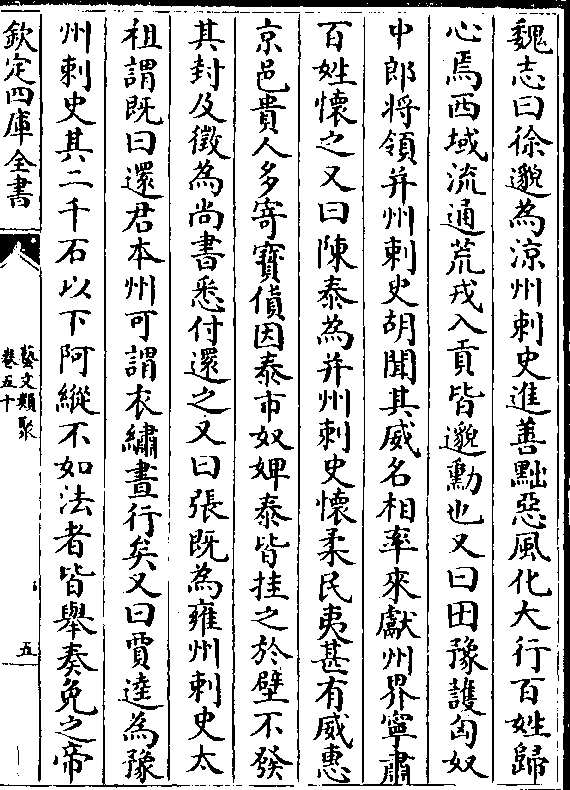 魏志曰徐邈為涼州刺史進善黜惡風化大行百姓歸
心焉西域流通荒戎入貢皆邈勳也又曰田豫護匈奴
中郎将領并州刺史胡聞其威名相率來獻州界寧肅
百姓懷之又曰陳泰為并州刺史懷柔民夷甚有威惠
京邑貴人多寄寶貨因泰市奴婢泰皆挂之於壁不發
其封及徵為尚書悉付還之又曰張既為雍州刺史太
祖謂既曰還君本州可謂衣繡晝行矣又曰賈逵為豫
州刺史其二千石以下阿縱不如法者皆舉奏免之帝
欽定四庫全書
藝文類聚
卷五十
五